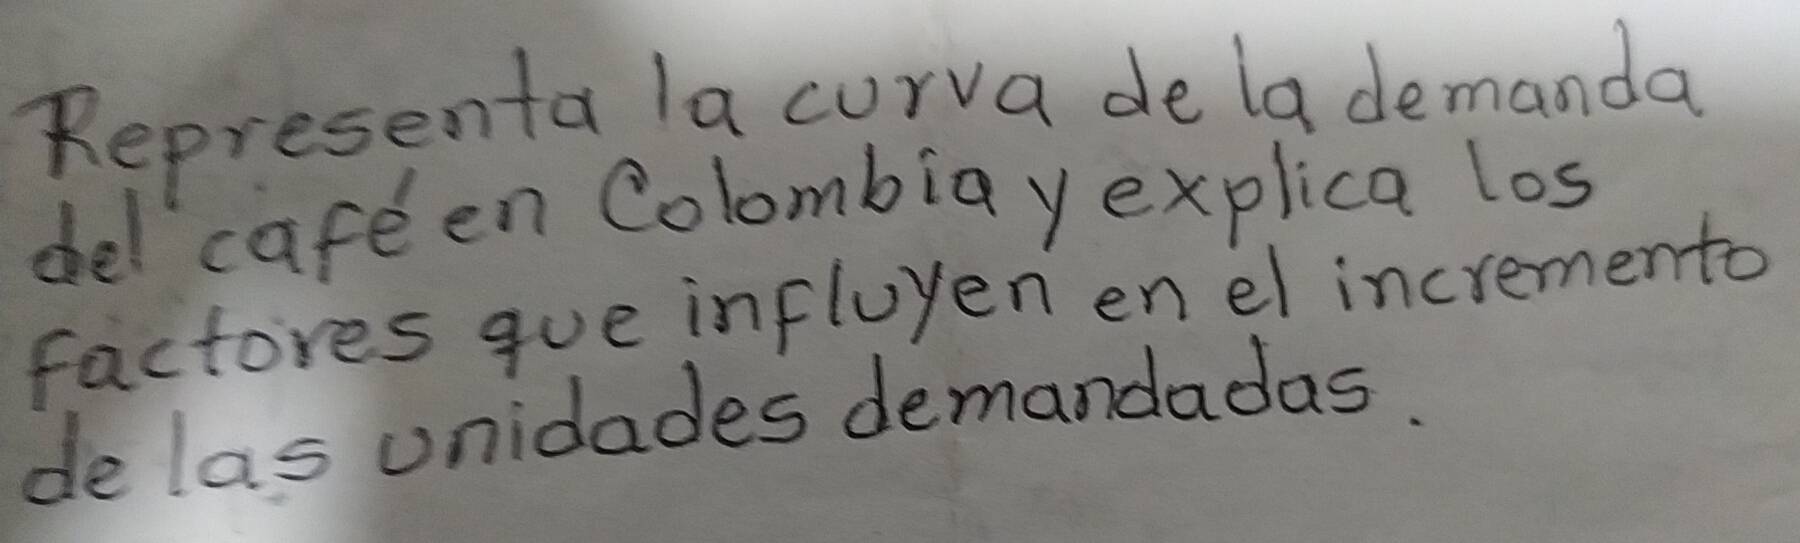 Representa la curva de la demanda
del café en Colombia y explica los
factores que influyen en el incremento
de las unidades demandadas.